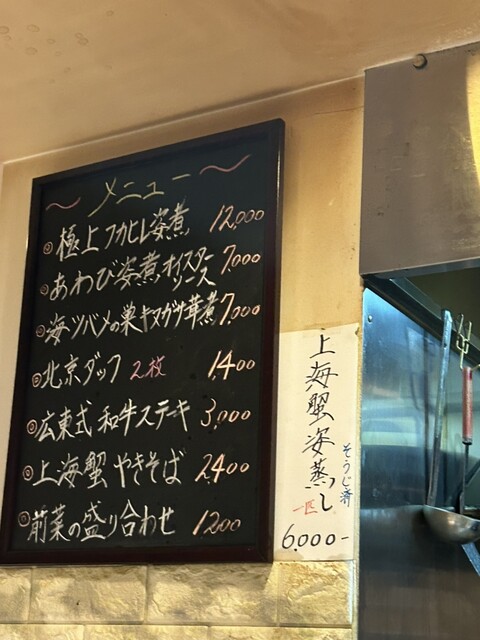 メニュー
◎極上フカヒレ姿煮 12,000
◎あわび姿煮オイスターソース 7,000
◎海ツバメの巣キヌガサ茸煮 7,000
◎北京ダック 2枚 1,400
◎広東式和牛ステーキ 3,000
◎上海蟹やきそば 2,400
◎前菜の盛り合わせ 1,200
上海蟹姿蒸し
一匹
そうじ済
6,000-